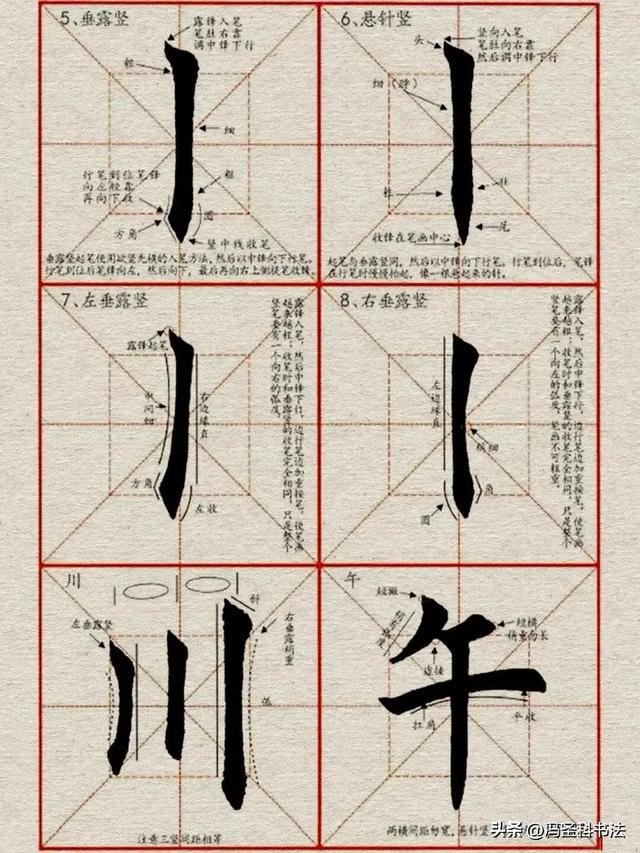 5、垂露竖
露锋入笔
笔肚右靠
调中锋下行
粗
细
行笔到位笔锋
向左轻靠
再向下收
粗
圆
方角
竖中线收笔
垂露竖起笔使用欲竖先横的入笔方法,然后以中锋向下行笔。
行笔到位后笔锋向左,然后向下,最后再向右上侧提笔收锋。
6、悬针竖
头
竖向入笔
笔肚向右靠
然后调中锋下行
细(脖)
肚
尾
收锋在笔画中心
起笔与垂露竖同,然后以中锋向下行笔,行笔到位后,笔锋
在行笔时慢慢抬起,像一根悬起来的针。
7、左垂露竖
露锋起笔
中间细
右边缘直
方角
左收
露锋入笔,然后中锋下行,边行笔边加重按笔,使笔画
越来越粗;收笔时和垂露竖的收笔完全相同,只是整个
竖笔要有一个向右的弧度。
8、右垂露竖
左边缘直
稍细
角
圆
露锋入笔,然后中锋下行,边行笔边加重按笔,使笔画
越来越粗;收笔时和垂露竖的收笔完全相同,只是整个
竖笔要有一个向左的弧度,笔画不可粗重。
川
左垂露竖
斜
右垂露稍重
弧
川
注意三竖间距相等
午
短撇
短横
稍重而长
连接
扛肩
平收
午
两横间距匀宽,悬针竖
头条 @冯圣科书法